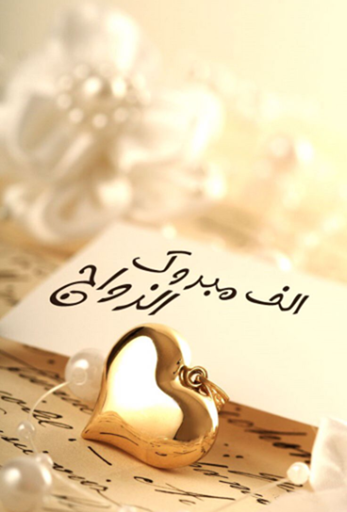 الف مبروك
الزواج